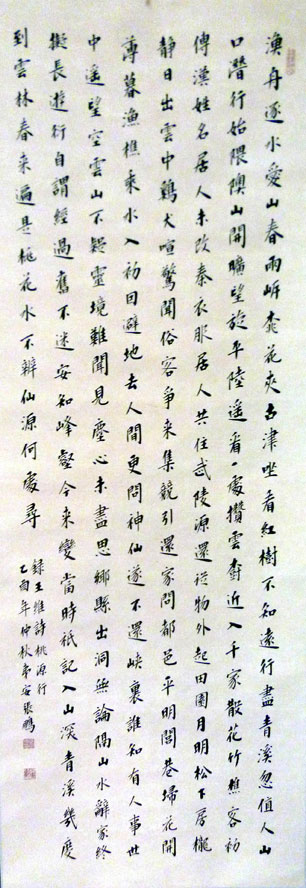 漁舟逐水愛山春兩岸桃花夾古津坐看紅樹不知遠行盡青溪忽值人山
口潛行始隈隩山開曠望旋平陸遙看一處攢雲樹近入千家散花竹樵客初
傳漢姓名居人未改秦衣服居人共住武陵源還從物外起田園月明松下房櫳
靜日出雲中鷄犬喧驚聞俗客爭來集競引還家問都邑平明閭巷掃花開
薄暮漁樵乘水入初因避地去人間更問神仙遂不還峽裏誰知有人事世
中遙望空雲山不疑靈境難聞見塵心未盡思鄉縣出洞無論隔山水辭家終
擬長遊行自謂經過舊不迷安知峰壑今來變當時祇記入山深青溪幾度
到雲林春來遍是桃花水不辨仙源何處尋
錄王維詩桃源行
乙酉年仲秋安張鵬